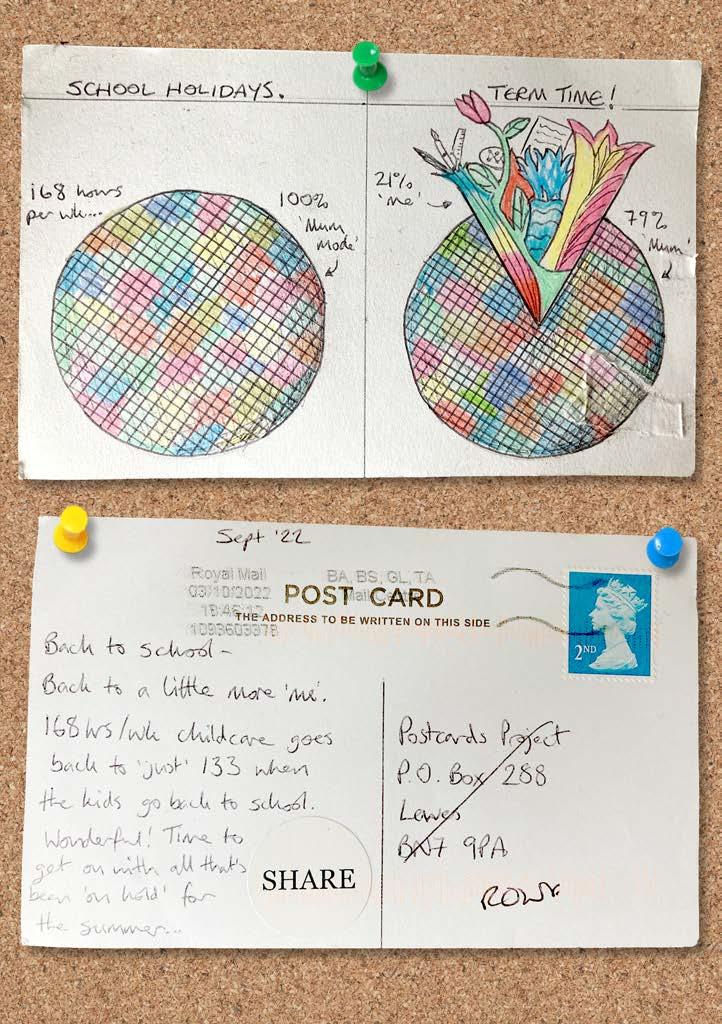 SCHOOL HOLIDAYS.
TERM TIME!
168 hours
per wk...
100%
'Mum
mode'
21%
'me'
79%
'Mum'
Sept '22
Royal Mail
03/10/2022
18:46:12
1093603378
BA, BS, GL, TA
Mail Centre
POST CARD
THE ADDRESS TO BE WRITTEN ON THIS SIDE
2ND
Back to school -
Back to a little more 'me'.
168hrs/wk childcare goes
back to 'just' 133 when
the kids go back to school.
Wonderful! Time to
get on with all that's
been 'on hold' for
the summer...
SHARE
Postcards Project
P.O. Box 288
Lewes
BN7 9PA